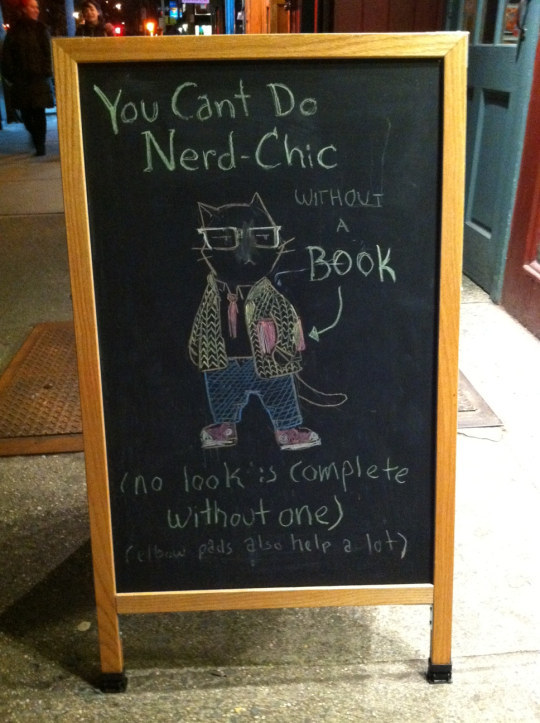 You Cant Do
Nerd-Chic
WITHOUT
A
BOOK
(no look is complete
without one)
(elbow pads also help a lot)